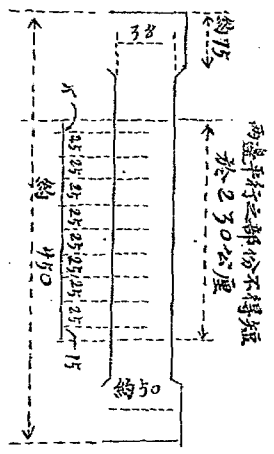 約75
38
兩邊平行之部份不得短
於230公厘
15
25
25
25
25
25
25
25
25
15
約450
約50